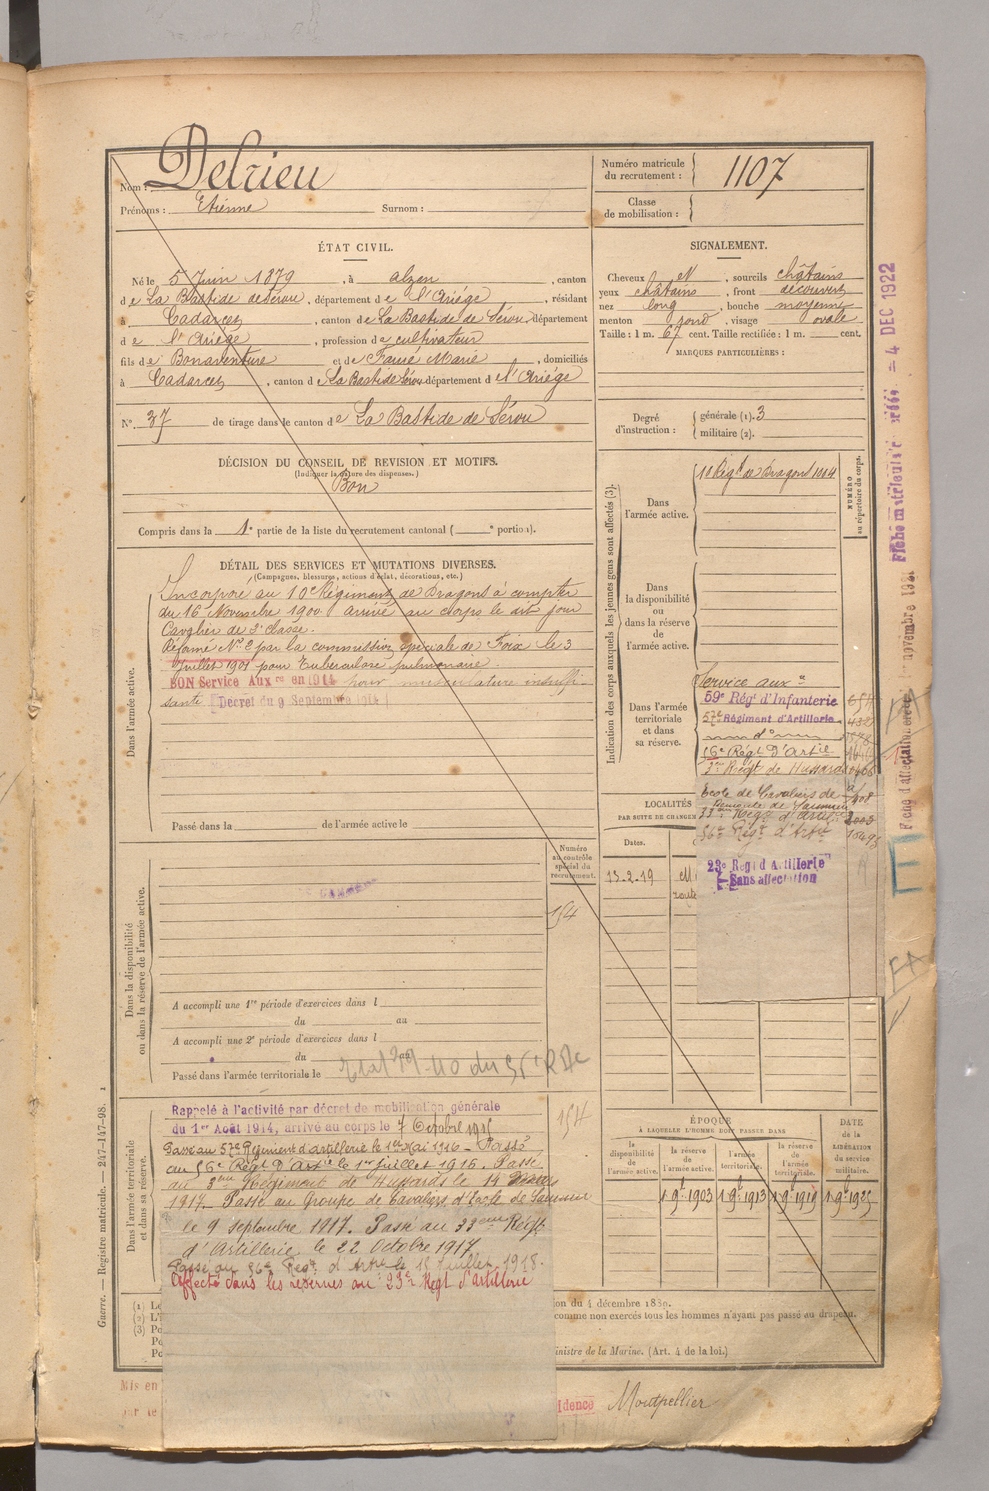 Nom : Delrieu
Prénoms : Etienne Surnom :
Numéro matricule du recrutement : 1107
Classe de mobilisation :
ÉTAT CIVIL.
Né le 5 Juin 1879, à Alzen, canton
de La Bastide de Sérou, département de l'Ariége, résidant
à Cadarcet, canton de La Bastide de Sérou, département
de l'Ariége, profession de cultivateur
fils de Bonaventure et de Faure Marie, domiciliés
à Cadarcet, canton de La Bastide Sérou département de l'Ariége
N° 37 de tirage dans le canton de La Bastide de Sérou
SIGNALEMENT.
Cheveux et, sourcils châtains
yeux châtains, front découvert
nez long, bouche moyenne
menton rond, visage ovale
Taille : 1 m. 67 cent. Taille rectifiée : 1 m. cent.
MARQUES PARTICULIÈRES :
Degré d'instruction : générale (1). 3
militaire (2).
DÉCISION DU CONSEIL DE REVISION ET MOTIFS.
(Indiquer la nature des dispenses.)
Bon
Compris dans la 1e partie de la liste du recrutement cantonal ( e portion).
DÉTAIL DES SERVICES ET MUTATIONS DIVERSES.
(Campagnes, blessures, actions d'éclat, décorations, etc.)
Dans l'armée active.
Incorporé au 10e Régiment de Dragons à compter
du 16 Novembre 1900 arrivé au corps le dit jour
Cavalier de 2e classe.
Réformé N° 2 par la commission spéciale de Foix le 3
Juillet 1901 pour Tuberculose pulmonaire.
BON Service Auxre en 1914 pour musculature insuffi-
sante Décret du 9 Septembre 1914
Passé dans la de l'armée active le
Indication des corps auxquels les jeunes gens sont affectés (3).
NUMÉRO au répertoire du corps.
Dans l'armée active.
10 Régt de Dragons 1104
Dans la disponibilité ou dans la réserve de l'armée active.
Dans l'armée territoriale et dans sa réserve.
Service auxre
59e Régt d'Infanterie
57e Régiment d'Artillerie
do
56e Régt d'Artie
3me Régt de Hussards
Ecole de Cavaliers de
Remonte de Saumur
33me Régt d'Artie
56e Régt d'Artie
23e Régt d'Artillerie
Sans affectation
LOCALITÉS
PAR SUITE DE CHANGEM
Dates.
13-2-19
Dans la disponibilité ou dans la réserve de l'armée active.
Numéro au contrôle spécial du recrutement.
154
A accompli une 1re période d'exercices dans l
du au
A accompli une 2e période d'exercices dans l
du au
Passé dans l'armée territoriale le
Dans l'armée territoriale et dans sa réserve.
154
Rappelé à l'activité par décret de mobilisation générale
du 1er Août 1914, arrivé au corps le 7 Octobre 1915
Passé au 57e Régiment d'artillerie le 1er Mai 1916 - Passé
au 56e Régt d'Artie le 1er Juillet 1916. Passé
au 3me Régiment de Hussards le 14 Mars
1917. Passé au Groupe de Cavaliers d'Ecole de Saumur
le 9 septembre 1917. Passé au 33eme Régt
d'Artillerie le 22 Octobre 1917
Passé au 56e Régt d'Artie le 15 Juillet 1918.
Affecté dans les réserves au 23e Régt d'Artillerie
ÉPOQUE
À LAQUELLE L'HOMME DOIT PASSER DANS
la disponibilité de l'armée active.
la réserve de l'armée active.
l'armée territoriale.
la réserve de l'armée territoriale.
DATE de la LIBÉRATION du service militaire.
1 9bre 1903
1 9bre 1913
1 9bre 1919
1 9bre 1925
on du 4 décembre 1889.
comme non exercés tous les hommes n'ayant pas passé au drapeau.
inistre de la Marine. (Art. 4 de la loi.)
Mis en
idence Montpellier
Guerre. — Registre matricule. — 247-147-98. 1
Fiche matriculaire = 4 DEC 1922
FA